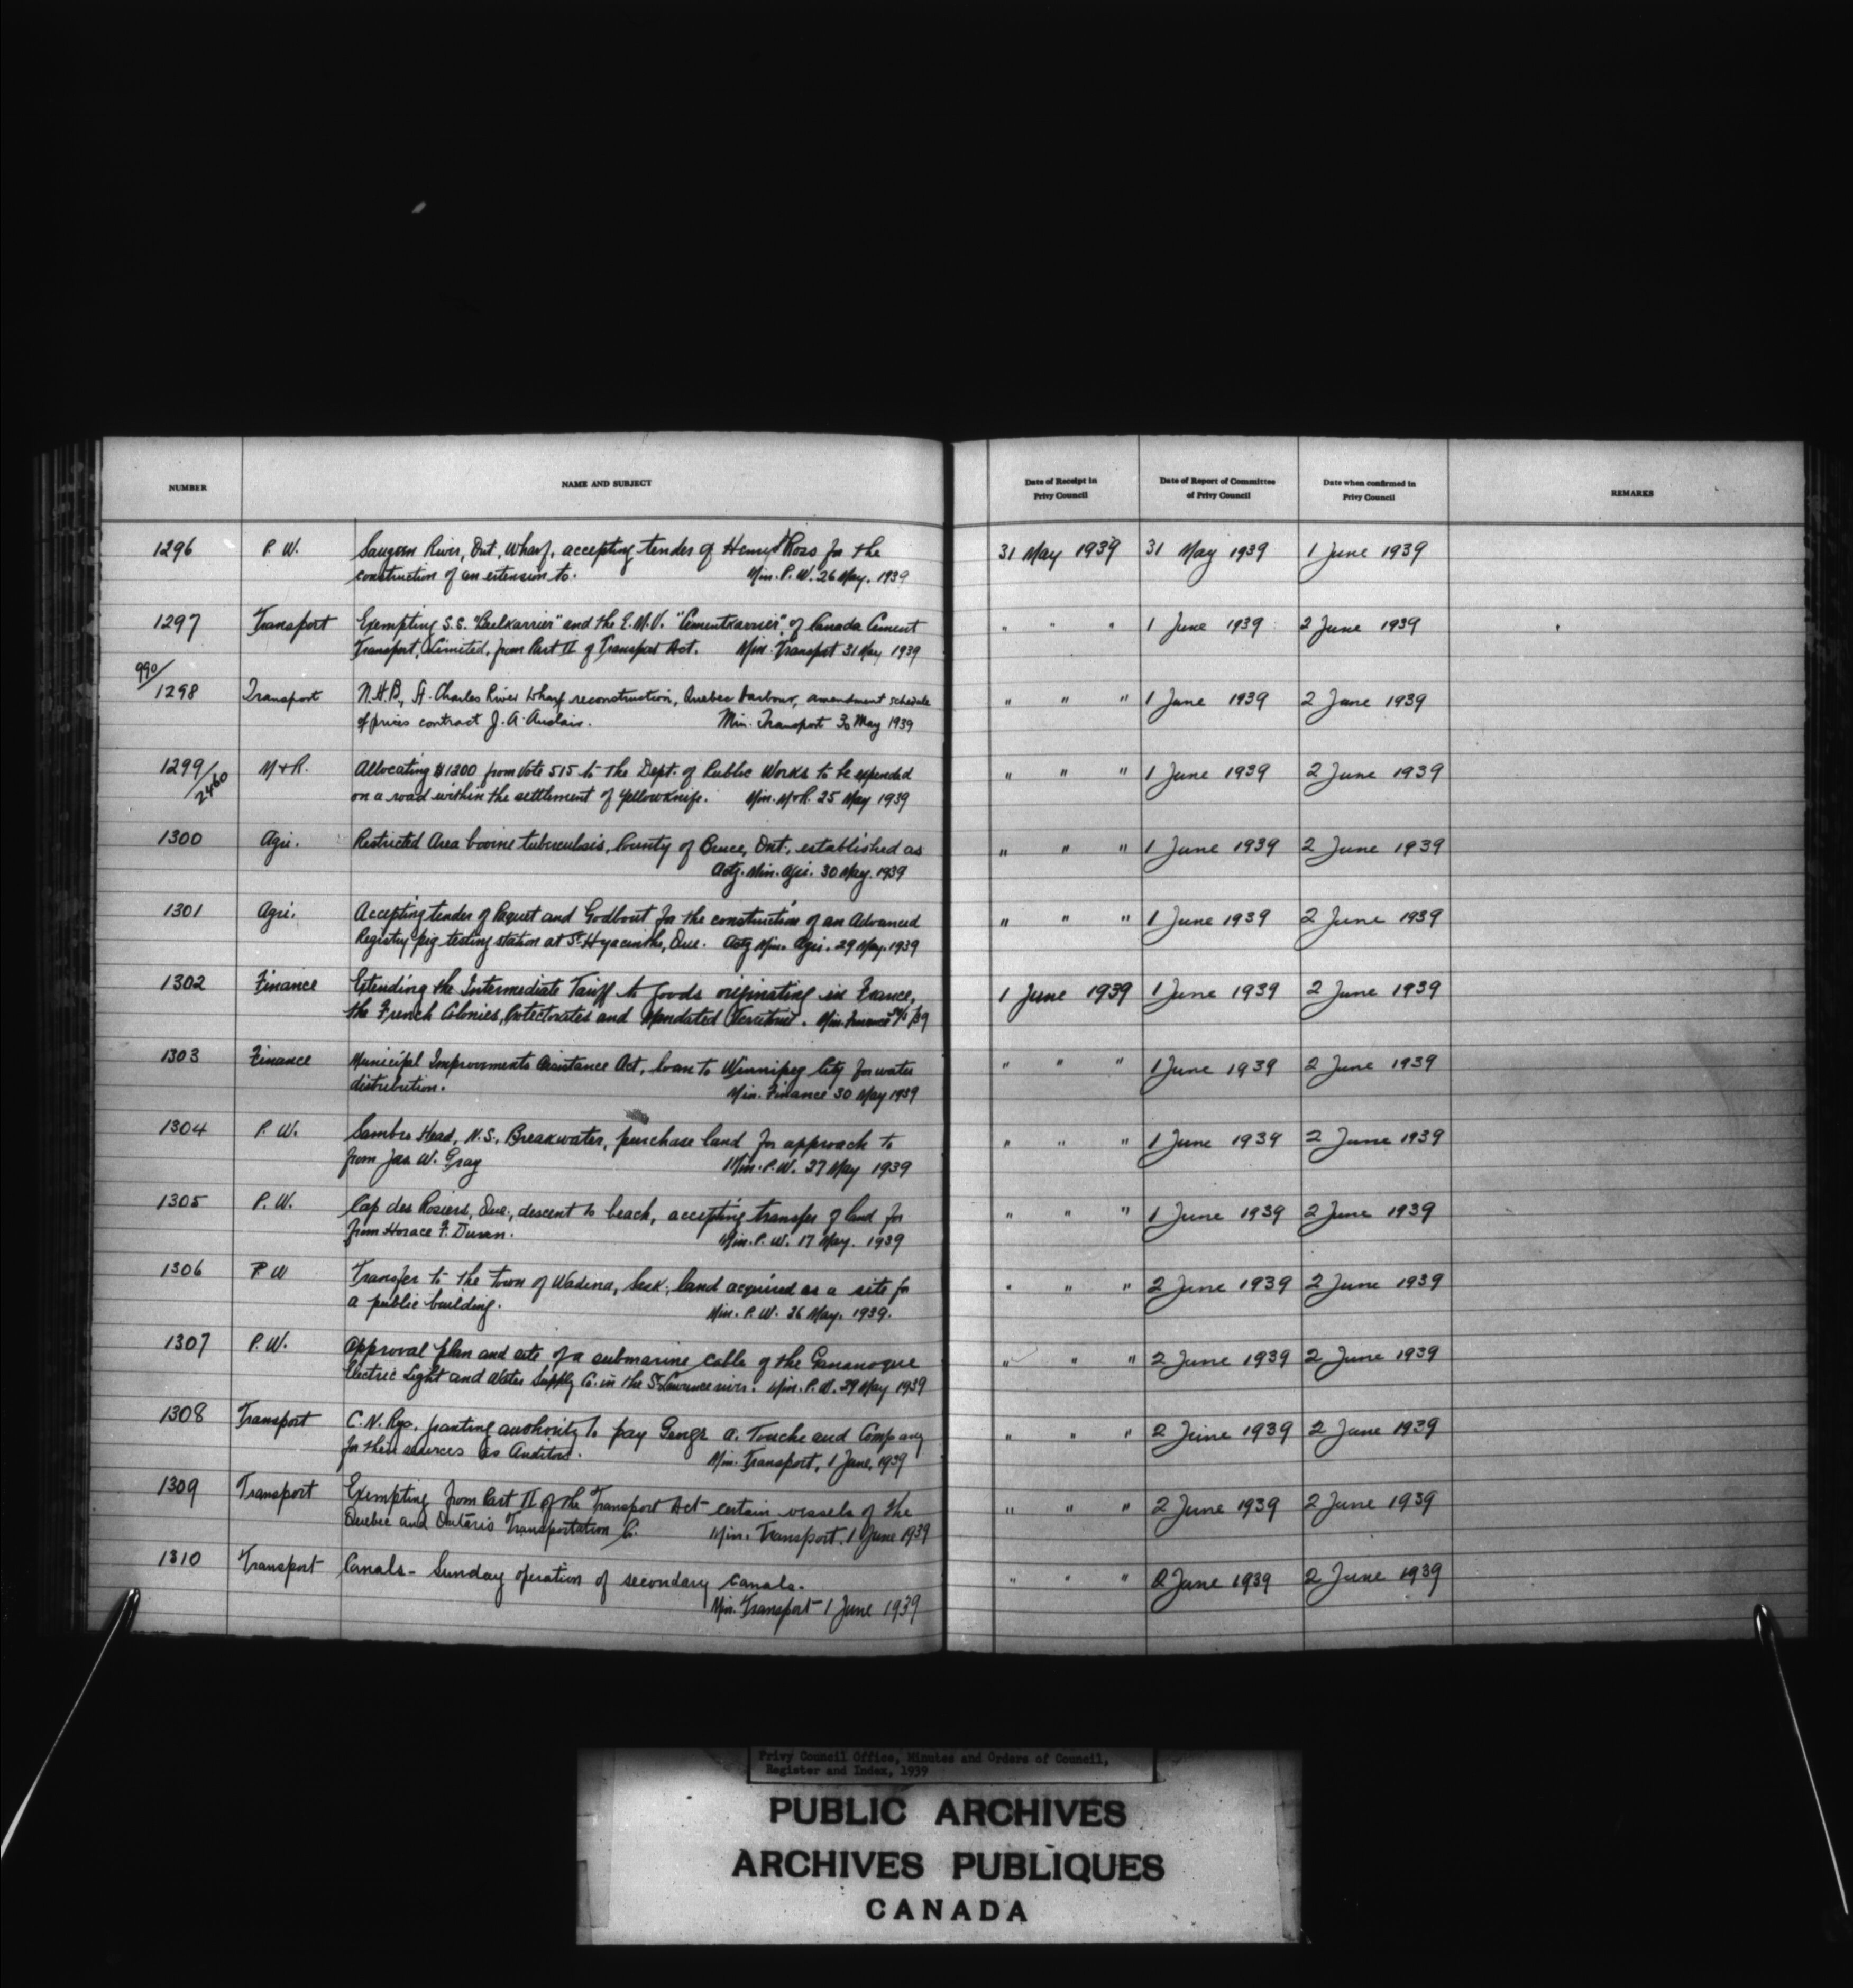 NUMBER NAME AND SUBJECT Date of Receipt in Privy Council Date of Report of Committee of Privy Council Date when confirmed in Privy Council REMARKS
1296 P. W. Saugeen River, Ont., Wharf, accepting tender of Henry Ross for the 31 May 1939 31 May 1939 1 June 1939
construction of an extension to. Min. P. W. 26 May. 1939
1297 Transport Exempting S.S. "Gaelkarrier" and the E.M.V. "Cementkarrier" of Canada Cement " " " 1 June 1939 2 June 1939
Transport, Limited, from Part II of Transport Act. Min. Transport 31 May 1939
990/
1298 Transport N.H.B., St. Charles River Wharf reconstruction, Quebec harbour, amendment schedule " " " 1 June 1939 2 June 1939
of prices contract J. A. Min. Transport 30 May 1939
1299/2460 M+R. Allocating $1200 from Vote 515 to the Dept. of Public Works to be expended " " " 1 June 1939 2 June 1939
on a road within the settlement of Yellowknife. Min. M+R. 25 May 1939
1300 Agri. Restricted Area bovine tuberculosis, County of Bruce, Ont., established as " " " 1 June 1939 2 June 1939
Actg. Min. Agri. 30 May. 1939
1301 Agri. Accepting tender of Paquet and Godbout for the construction of an Advanced " " " 1 June 1939 2 June 1939
Registry pig testing station at St. Hyacinthe, Que. Actg Min. Agri. 29 May. 1939
1302 Finance Extending the Intermediate Tariff to goods originating in France, 1 June 1939 1 June 1939 2 June 1939
the French Colonies, Protectorates and Mandated Territories. Min. Finance /39
1303 Finance Municipal Improvements Assistance Act, loan to Winnipeg City for water " " " 1 June 1939 2 June 1939
distribution. Min. Finance 30 May 1939
1304 P. W. Sambro Head, N.S., Breakwater, purchase land for approach to " " " 1 June 1939 2 June 1939
from Jas W. Gray Min. P.W. 27 May 1939
1305 P. W. Cap des Rosiers, Que., descent to beach, accepting transfer of land for " " " 1 June 1939 2 June 1939
from Horace F. Min. P. W. 17 May. 1939
1306 P W Transfer to the Town of Wadena, Sask., land acquired as a site for " " " 2 June 1939 2 June 1939
a public building. Min. P. W. 26 May. 1939.
1307 P. W. Approval plan and site of a submarine cable of the Gananoque " " " 2 June 1939 2 June 1939
Electric Light and Water Supply Co. in the St. Lawrence river. Min. P. W. 29 May 1939
1308 Transport C. N. Rys. granting authority to pay George A. Touche and Company " " " 2 June 1939 2 June 1939
for their services as Auditors. Min. Transport, 1 June, 1939
1309 Transport Exempting from Part II of the Transport Act certain vessels of the " " " 2 June 1939 2 June 1939
Quebec and Ontario Transportation Co. Min. Transport. 1 June 1939
1310 Transport Canals - Sunday operation of secondary canals. " " " 2 June 1939 2 June 1939
Min. Transport 1 June 1939
Privy Council Office, Minutes and Orders of Council,
Register and Index, 1939
PUBLIC ARCHIVES
ARCHIVES PUBLIQUES
CANADA